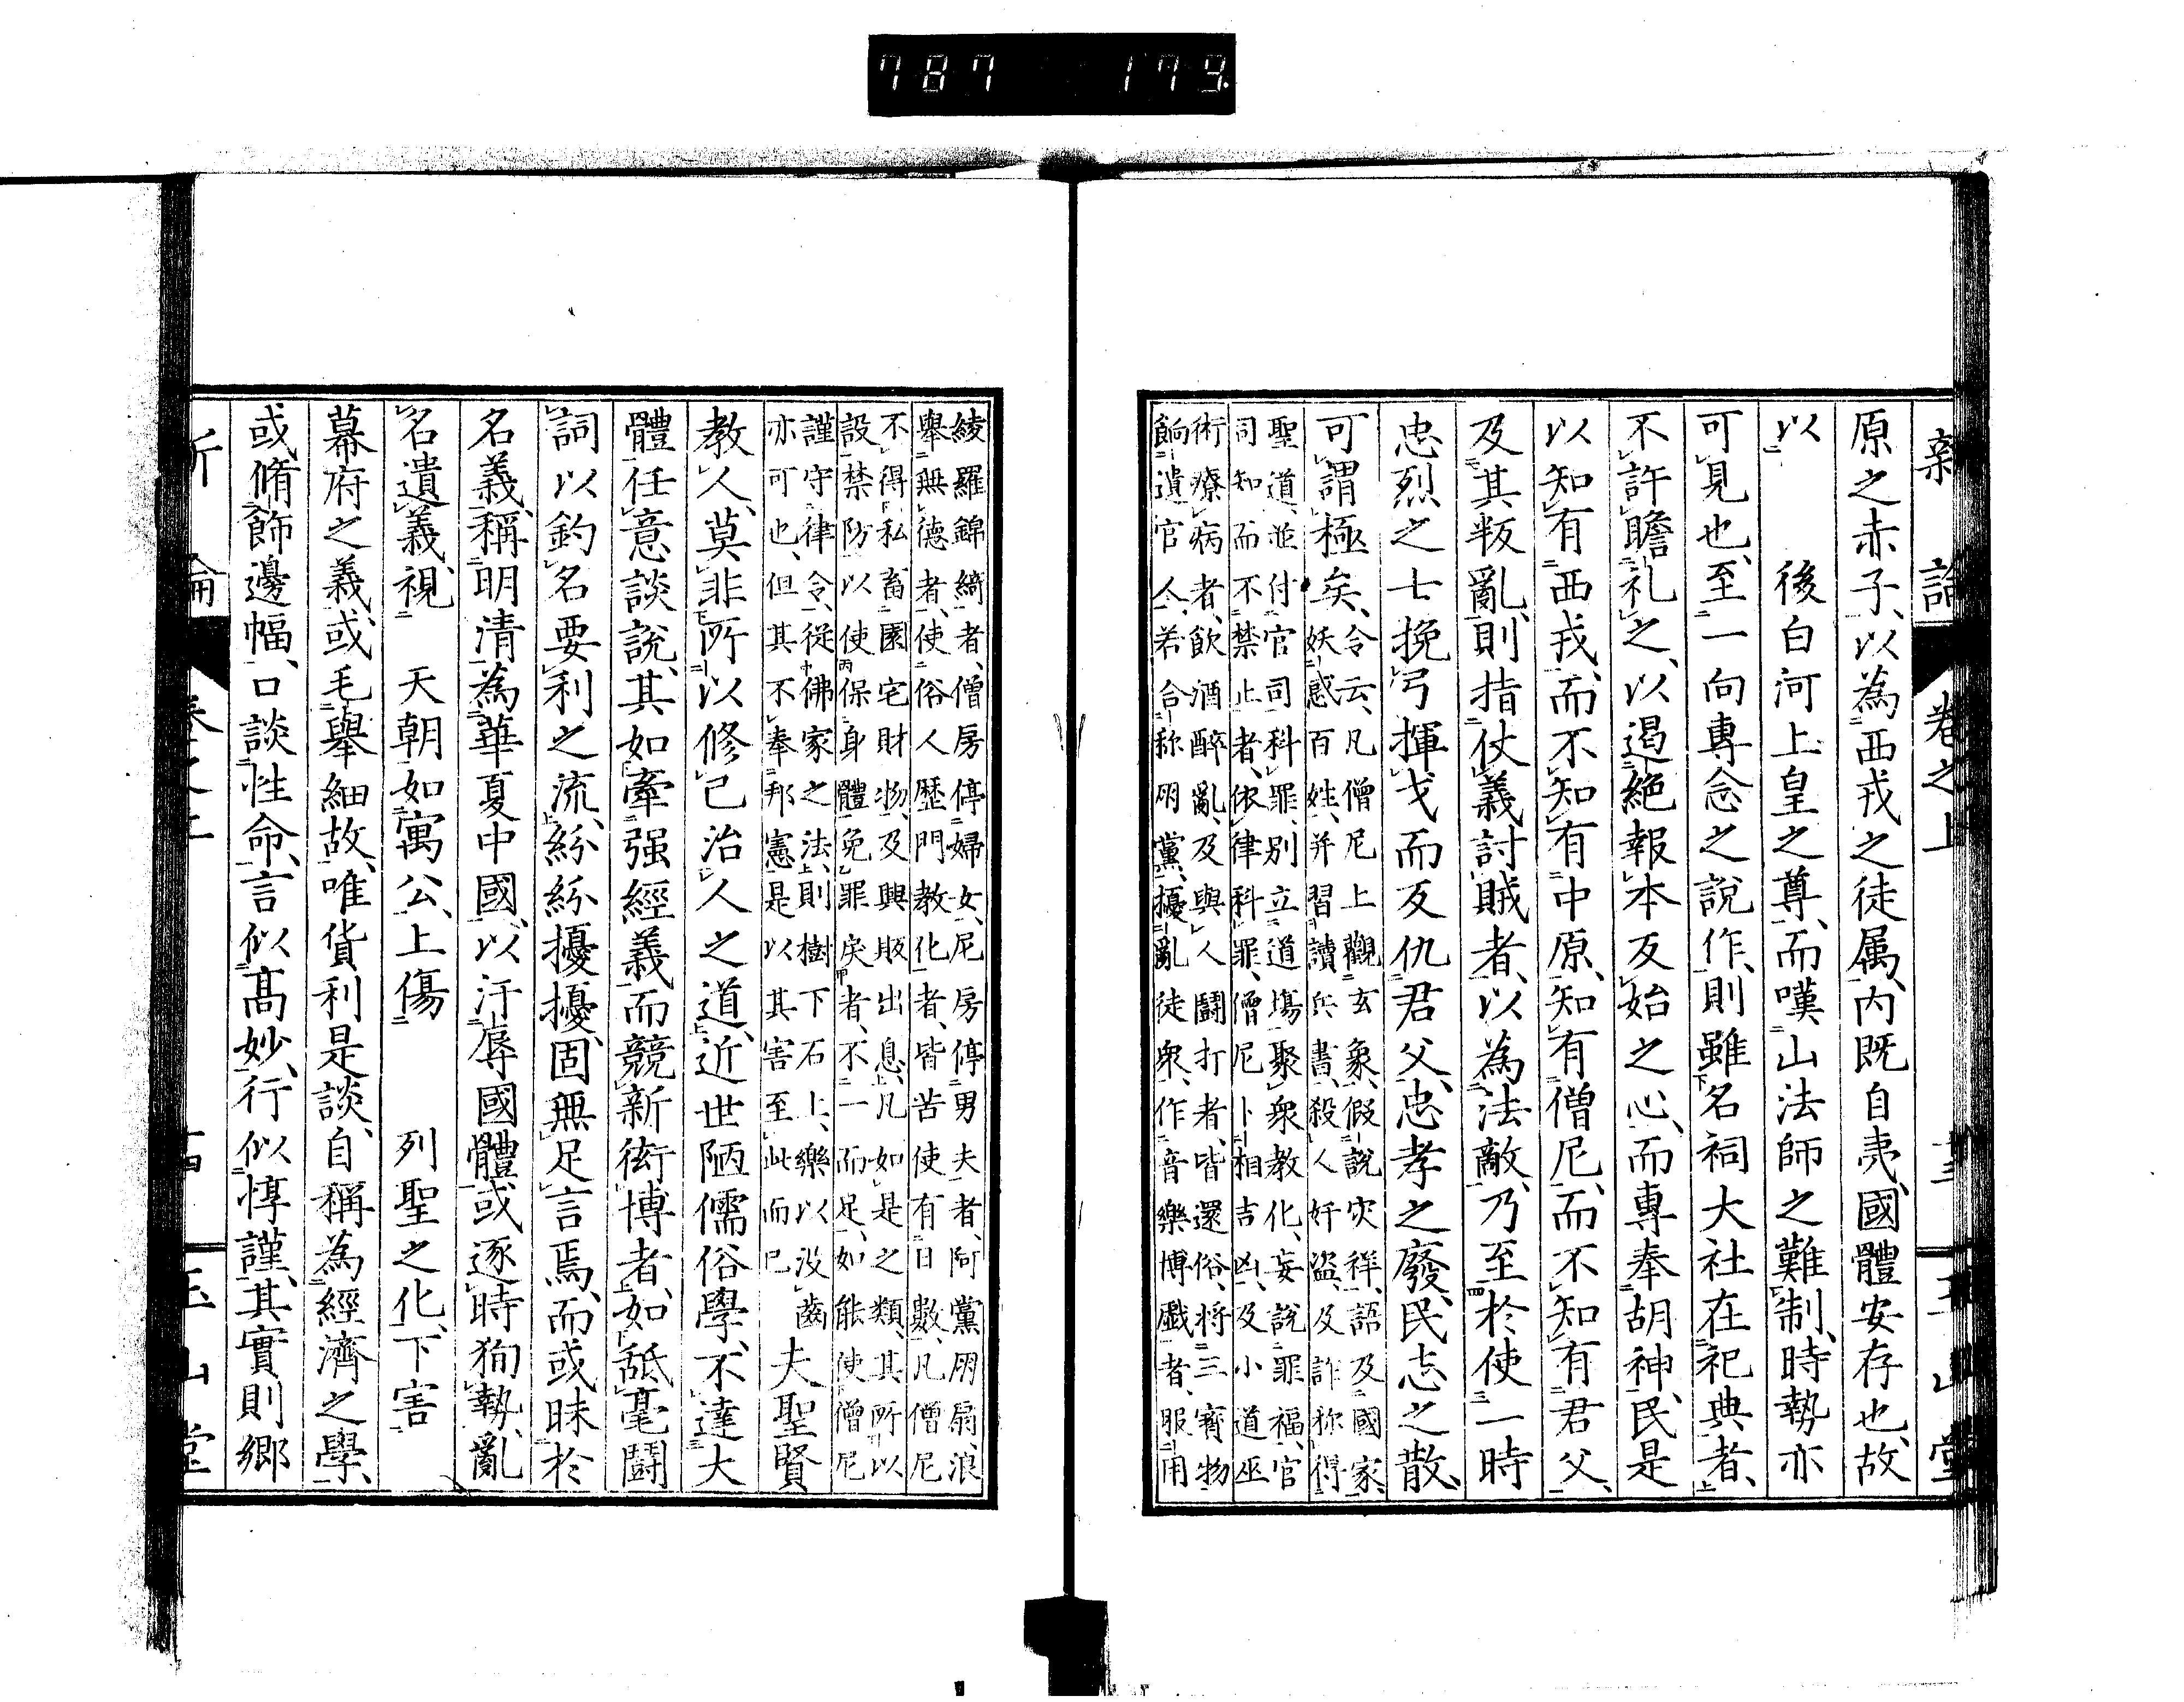 787 179
新論 卷之上 十三 玉山堂
原之赤子、以為西戎之徒属、内既自夷、國體安存也、故
以 後白河上皇之尊、而嘆山法師之難制、時勢亦
可見也、至一向專念之說作、則雖名祠大社在祀典者、
不許瞻礼之、以遏絕報本反始之心、而專奉胡神、民是
以知有西戎、而不知有中原、知有僧尼、而不知有君父、
及其叛亂、則指仗義討賊者、以為法敵、乃至於使一時
忠烈之士挽弓揮戈而反仇君父、忠孝之廢、民志之散、
可謂極矣、
令云、凡僧尼上觀玄象、假說灾祥、語及國家、
妖惑百姓、并習讀兵書、殺人奸盜、及詐称得
聖道、並付官司科罪、別立道塲、聚衆教化、妄說罪福、官
司知而不禁止者、依律科罪、僧尼卜相吉凶、及小道巫
術療病者、飲酒醉亂、及與人鬪打者、皆還俗、将三寳物
餉遺官人、若合称朋黨、擾亂徒衆、作音樂博戯者、服用
綾羅錦綺者、僧房停婦女、尼房停男夫者、阿黨朋扇、浪
舉無德者、使俗人歷門教化者、皆苦使有日數、凡僧尼
不得私畜園宅財物、及興販出息、凡如是之類、其所以
設禁防以使保身體免罪戾者、不一而足、如能使僧尼
謹守律令、從佛家之法、則樹下石上、樂以没齒
亦可也、但其不奉邦憲、是以其害至此而已
夫聖賢
教人、莫非所以修己治人之道、近世陋儒俗學、不達大
體、任意談說、其如牽强經義而競新衒博者、如舐毫鬪
詞以釣名要利之流、紛紛擾擾、固無足言焉、而或昧於
名義、稱明清為華夏中國、以汙辱國體、或逐時狥勢、亂
名遺義、視 天朝如寓公、上傷 列聖之化、下害
幕府之義、或毛舉細故、唯貨利是談、自稱為經濟之學、
或脩飾邊幅、口談性命、言似高妙、行似惇謹、其實則鄉